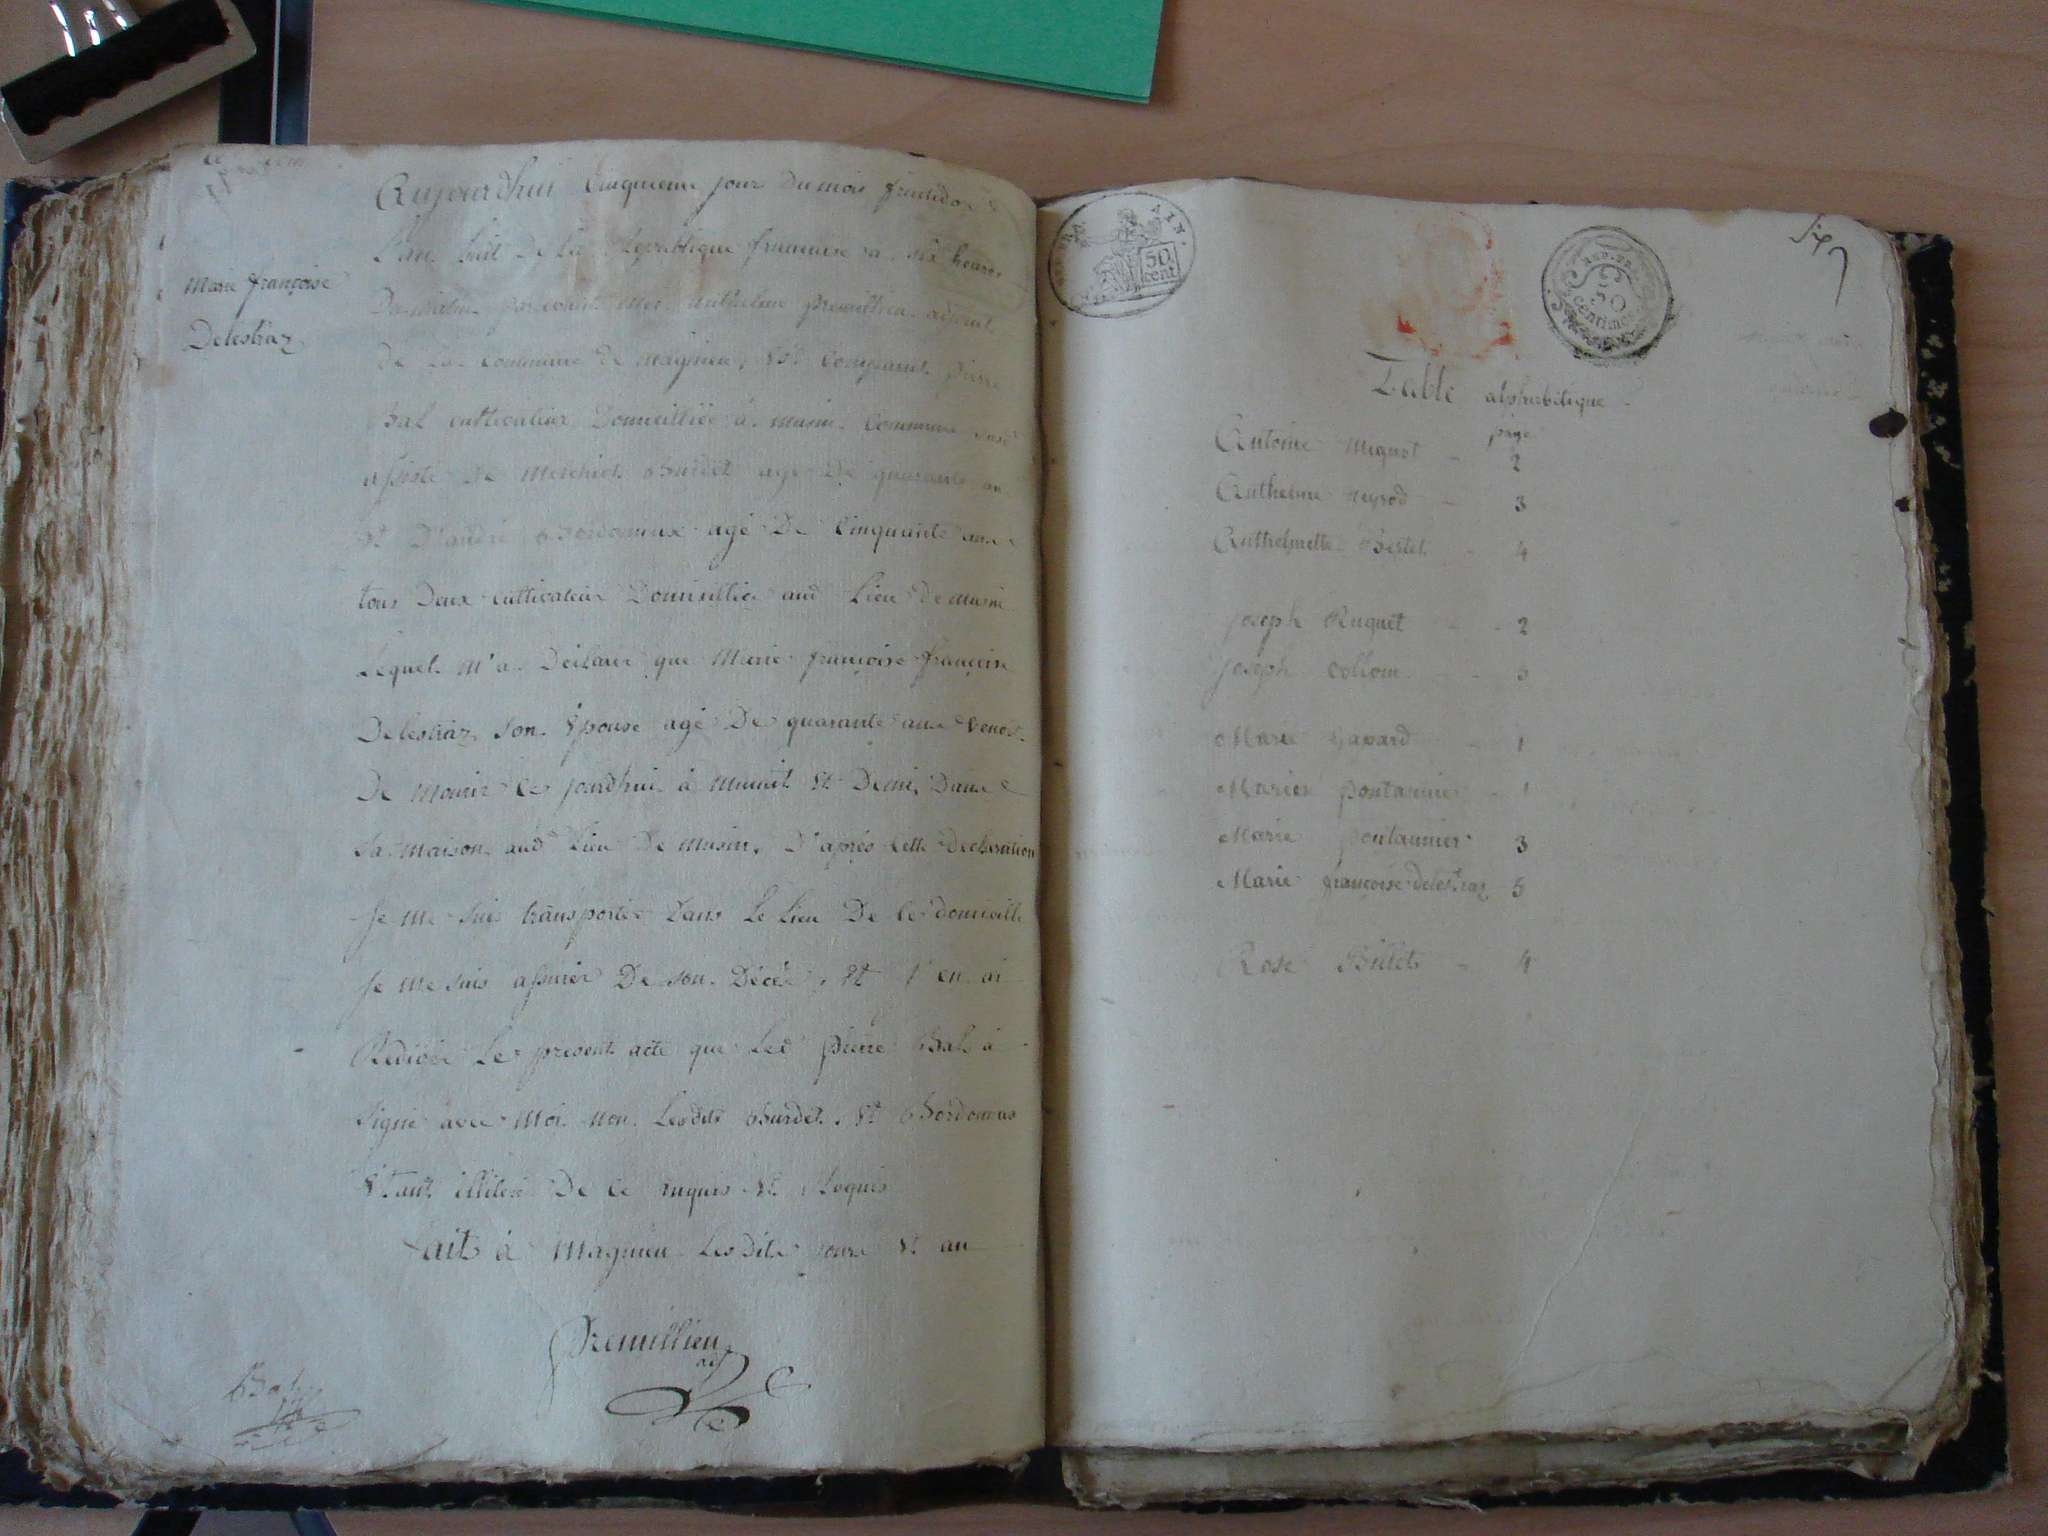 Marie françoise
Delestraz
Aujourdhui Cinquieme jour Du mois fructidor
L'an huit De La Republique francaise a six heures
Du matin pardevant moi Anthelme premillieu adjoint
De La Commune de magnieu, Est Comparut pierre
Bal cultivateur Domicillié à musin Commune
assisté De Burdet agé De quarante an
Et D'andré Bordonnux agé De Cinquante ans
tous Deux Cultivateur Domicillié aud Lieu De musin
Lequel m'a Déclaré que Marie françoise françoise
Delestraz Son Epouse agé De quarante ans venoit
De mourir Ce jourdhui à minuit Et Demi Dans
Sa maison aud Lieu De musin, D'après Cette Declaration
Je me suis transporté Dans Le Lieu De Ce domicille
Je me suis assurer De son Décès, Et j'en ai
Redigé Le present acte que Led pierre Bal à
Signé avec Moi non Lesdits Burdet, Et Bordonnus
Etant illiteré De Ce enquis Et Requis
Fait à Magnieu Lesdits jours Et an
Premillieu
adj
Bal
AIN.
50
cent
REP. FRA
50
centimes
Six
Table alphabétique
page
Antoine Miguet - 2
Anthelme Reyrod - 3
Anthelmette Bertet - 4
Joseph Ruguet - 2
Joseph Collom - 5
Marie Gapard - 1
Marie pontannier - 1
Marie pontannier 3
Marie françoise delestraz 5
Rose Billet - 4